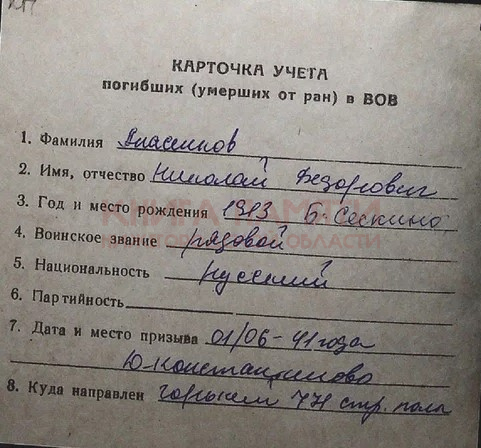 КАРТОЧКА УЧЕТА
погибших (умерших от ран) в ВОВ
1. Фамилия Власенков
2. Имя, отчество Николай Федорович
3. Год и место рождения 1913 Б-Сескино
4. Воинское звание рядовой
5. Национальность русский
6. Партийность
7. Дата и место призыва 01/06-41 года
Ю-Константиново
8. Куда направлен 771 стр. полк
КНИГА ПАМЯТИ
ОБЛАСТИ